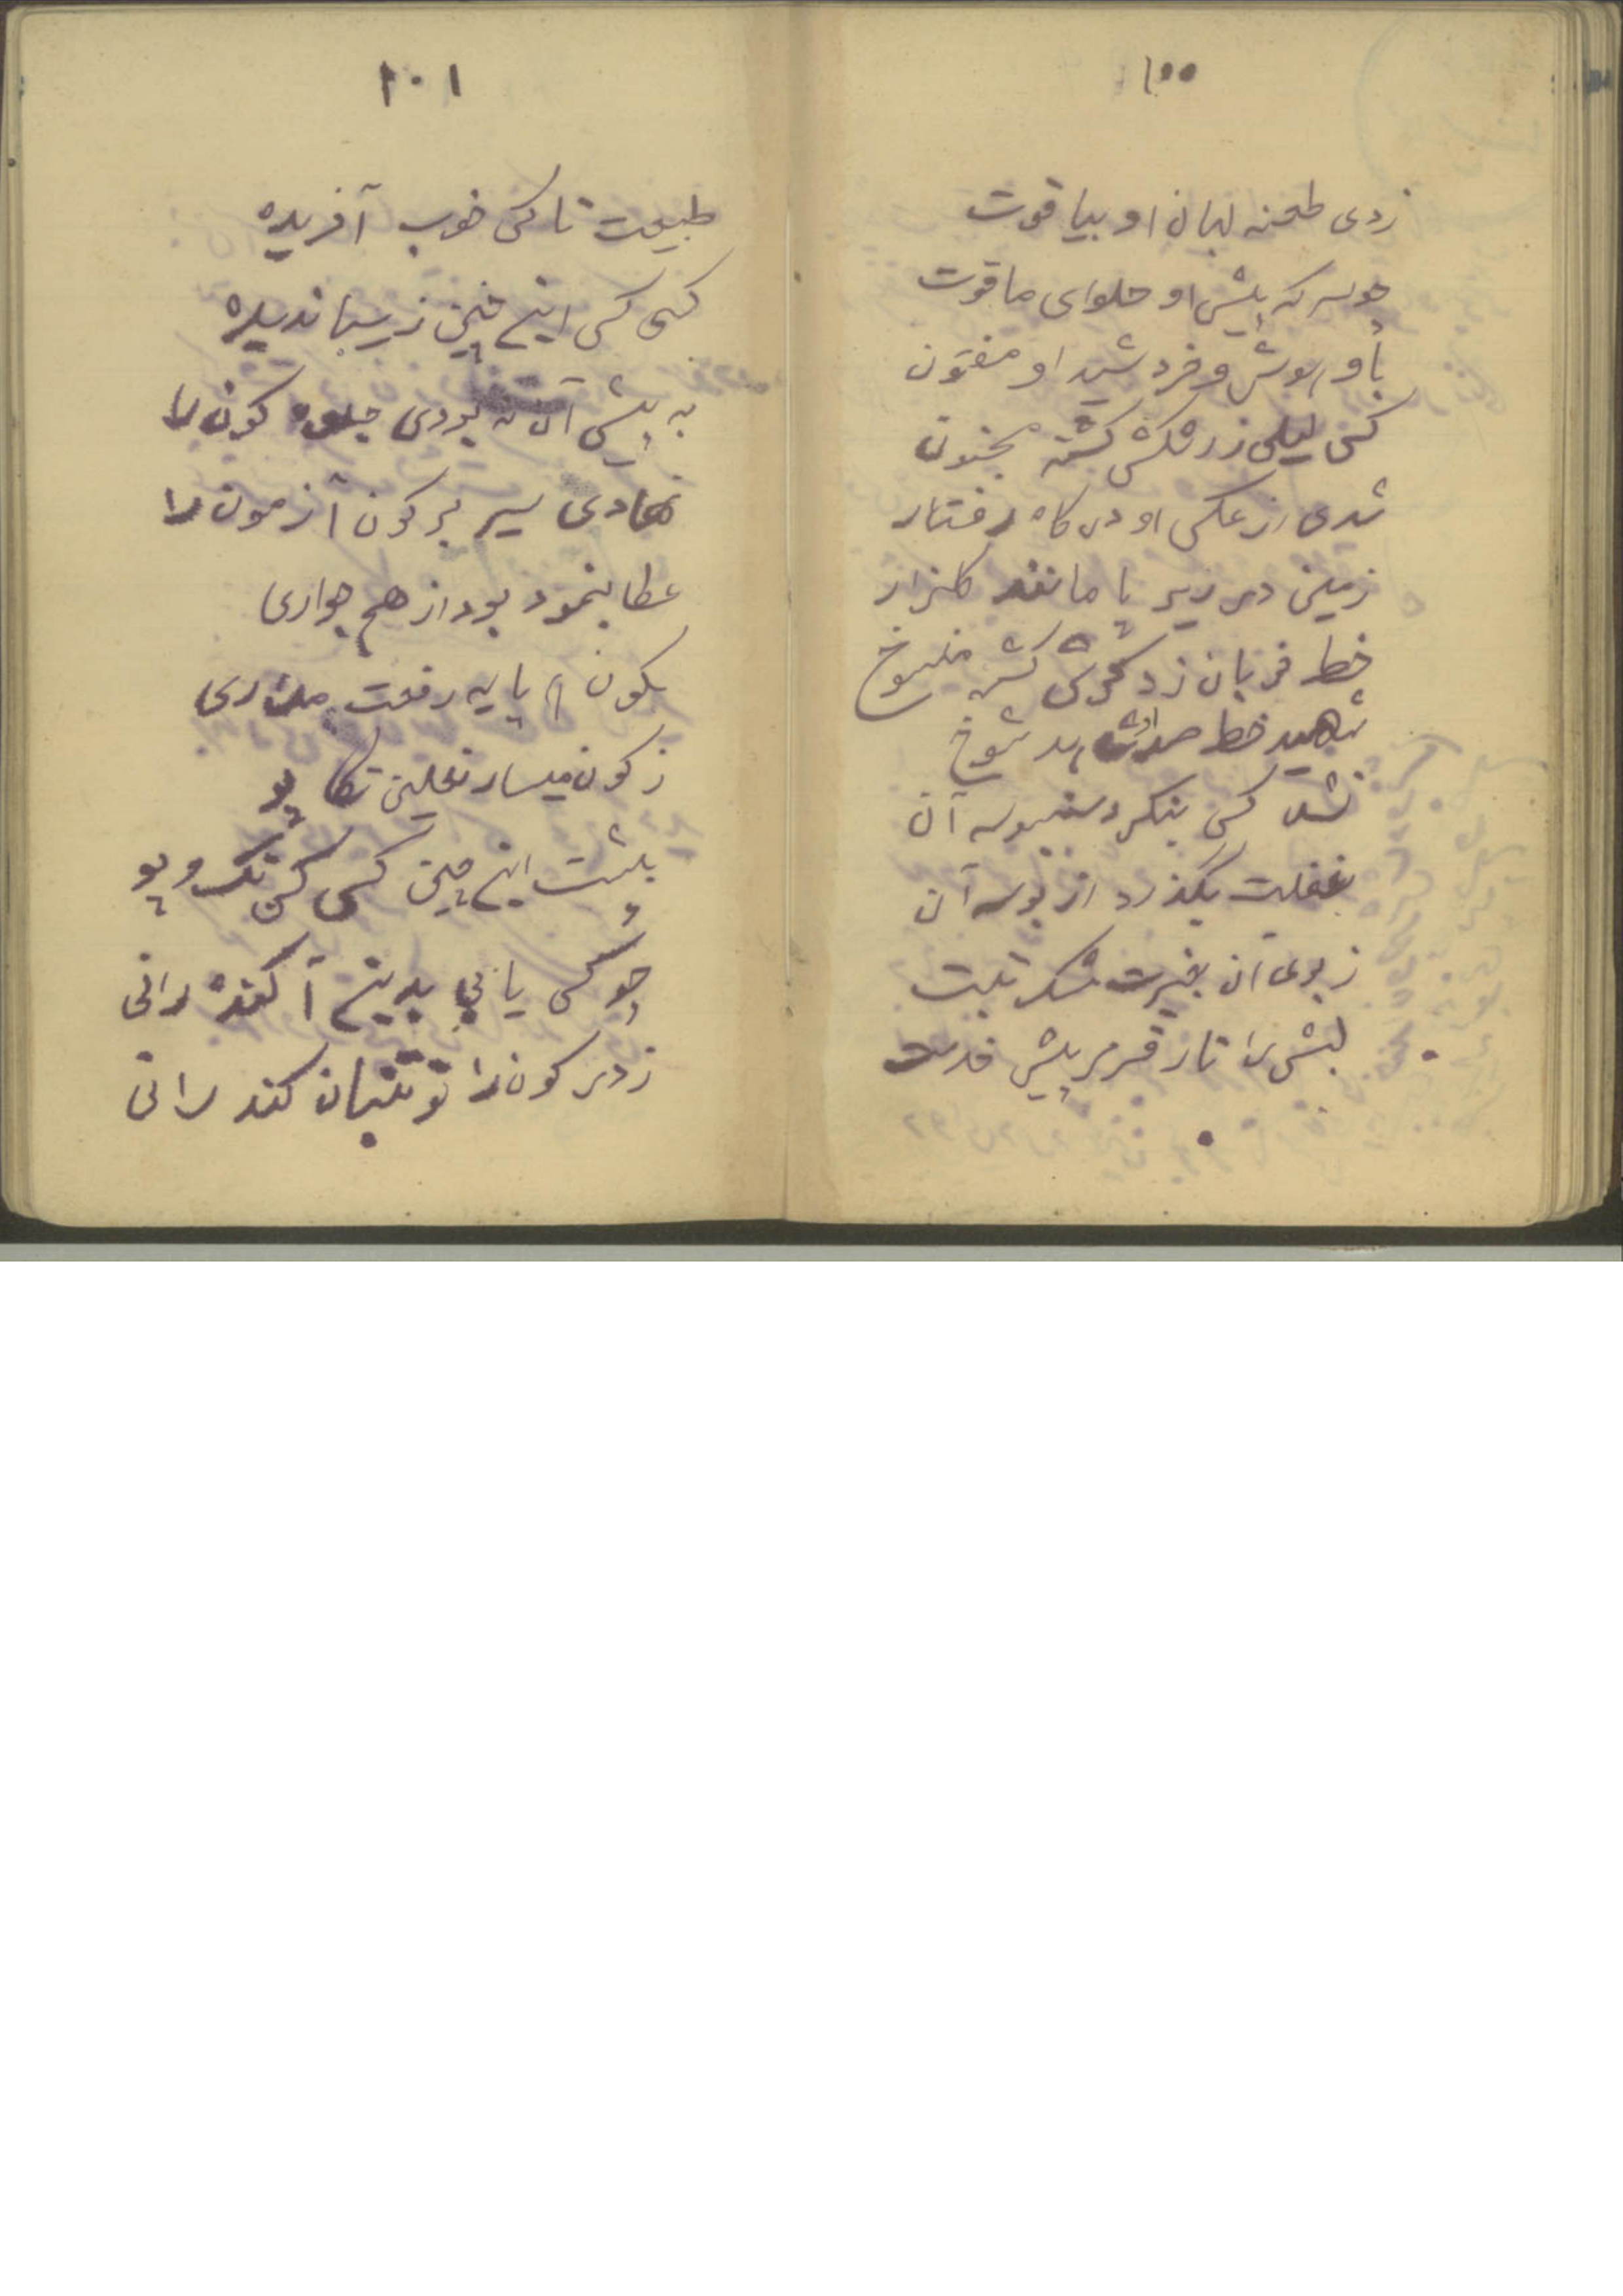 ۱۰۰
زدی طعنه لبان او بیاقوت
چو سرکه پیش او حلوای ماقوت
باو هوش و خرد شید او مفتون
کس لیلی ز رشکش کشته مجنون
شدی از عکس او در کاه رفتار
زمین در زیر پا مانند کلزار
خط قربان زد کس کشته منسوخ
شهید خط شوخ
نشد کس بنکرد سنبوسه آن
بغفلت بکذرد از بوسه آن
ز بوی آن بغیرت مشک تبت
لبش را تار قرمز پیش خدت
۱۰۱
طبیعت تا کس خوب آفریده
کسی کس اینچنین زیبا ندیده
به پیش آن نه بودی جلوه کون را
نهادی سیر بر کون آزمون را
عطا بنمود بود از هم جواری
بکون هم پایه رفعت مداری
ز کون میسار نعلین تکا پو
پشت اینچنین کس کس تک و پو
چو کس یابی بدینم آکنده رانی
ز در کون را تو تنبان کند رانی